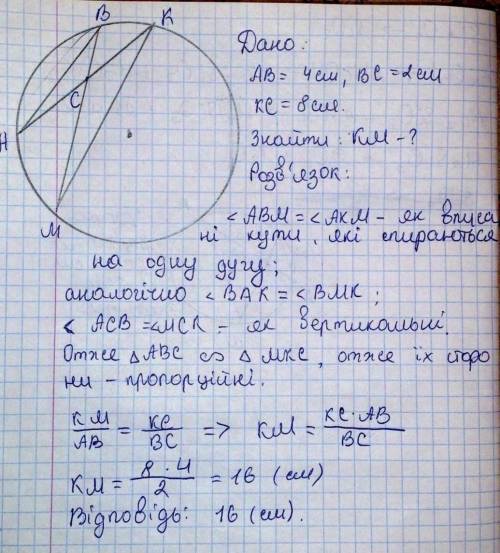 B K
Дано:
AB = 4 см, BC = 2 см
C
KC = 8 см.
H
Знайти: KM - ?
Розв'язок:
M
∠ABM = ∠AKM - як вписа
ні кути, які спираються
на одну дугу;
аналогічно ∠BAK = ∠BMK;
∠ACB = ∠MCK - як вертикальні.
Отже △ABC ∽ △MKC, отже їх сторо
ни - пропорційні.
KM/AB = KC/BC => KM = KC·AB/BC
KM = 8·4/2 = 16 (см)
Відповідь: 16 (см).